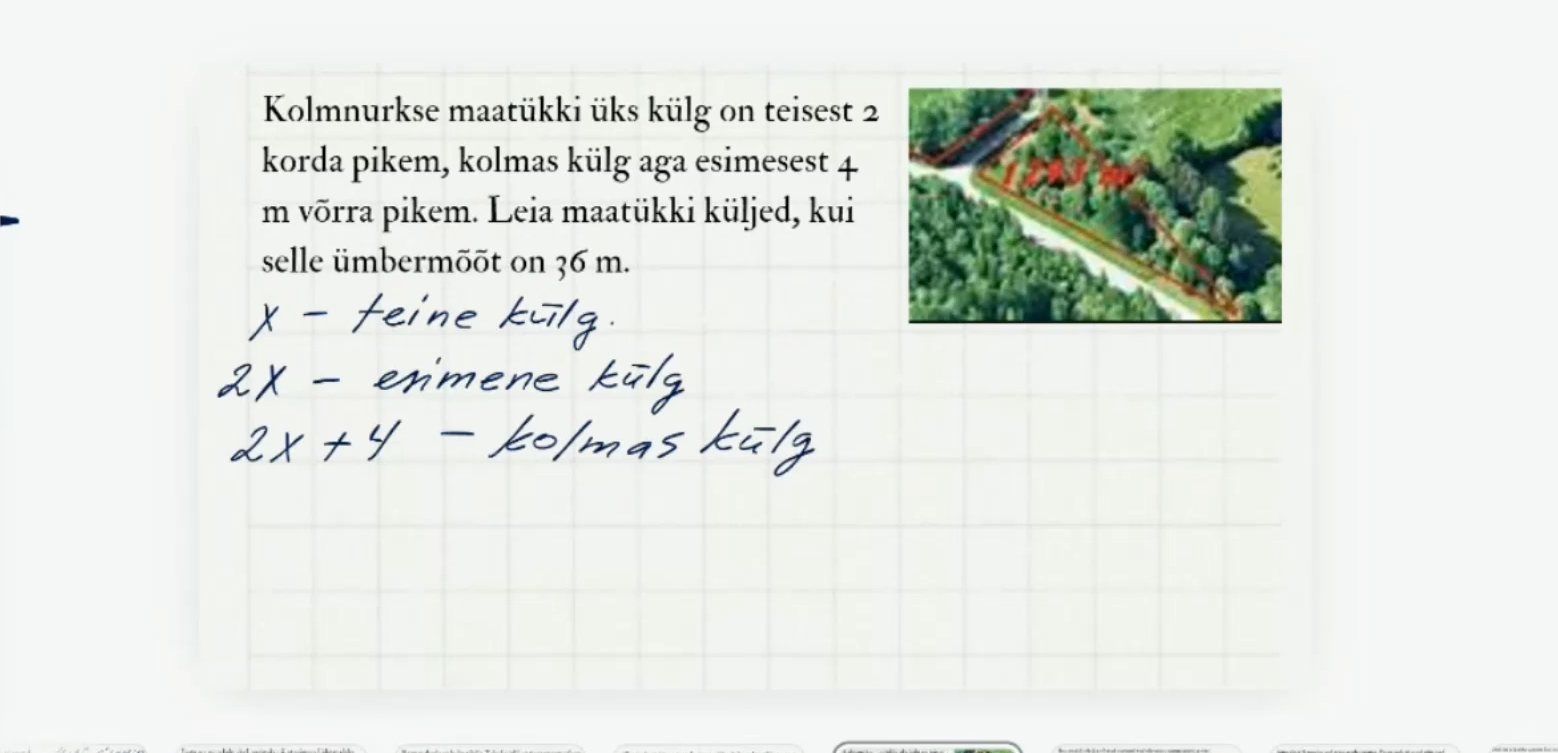 Kolmnurkse maatükki üks külg on teisest 2
korda pikem, kolmas külg aga esimesest 4
m võrra pikem. Leia maatükki küljed, kui
selle ümbermõõt on 36 m.
x – teine külg.
2x – esimene külg
2x + 4 – kolmas külg